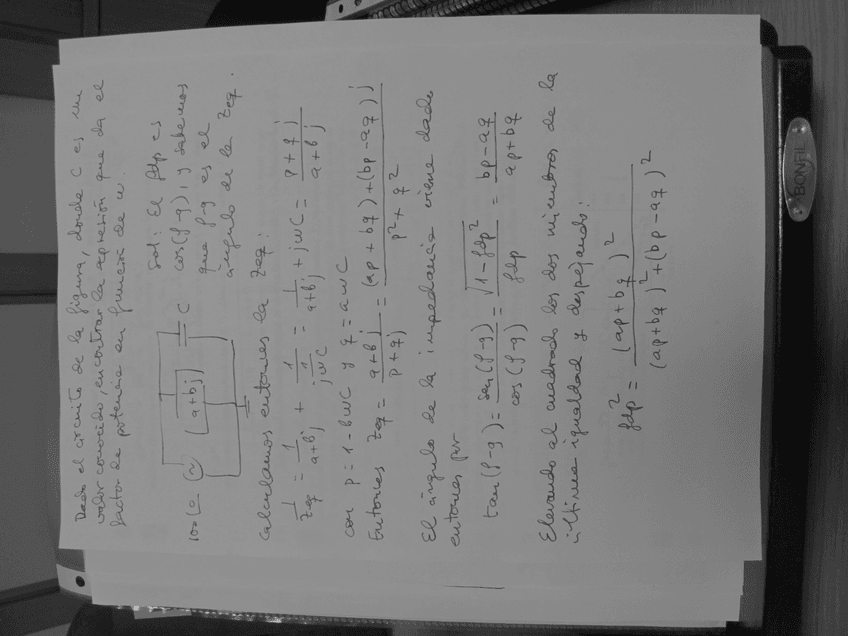 Dado el circuito de la figura, donde C es un
valor conocido, encontrar la expresión que da el
factor de potencia en función de w.
100 ∠0
a+bj
C
Sol: El fdp es
cos(φ-g), y sabemos
que φ-g es el
ángulo de la Zeq.
Calculamos entonces la Zeq:
1/Zeq = 1/(a+bj) + 1/(1/(jwC)) = 1/(a+bj) + jwC = (p+qj)/(a+bj)
con p = 1-bwC y q = awC
Entonces Zeq = (a+bj)/(p+qj) = ((ap+bq)+(bp-aq)j)/(p²+q²)
El ángulo de la impedancia viene dado
entonces por
tan(φ-g) = sen(φ-g)/cos(φ-g) = √(1-fdp²)/fdp = (bp-aq)/(ap+bq)
Elevando al cuadrado los dos miembros de la
última igualdad y despejando:
fdp² = (ap+bq)²/((ap+bq)²+(bp-aq)²)
BONFIL